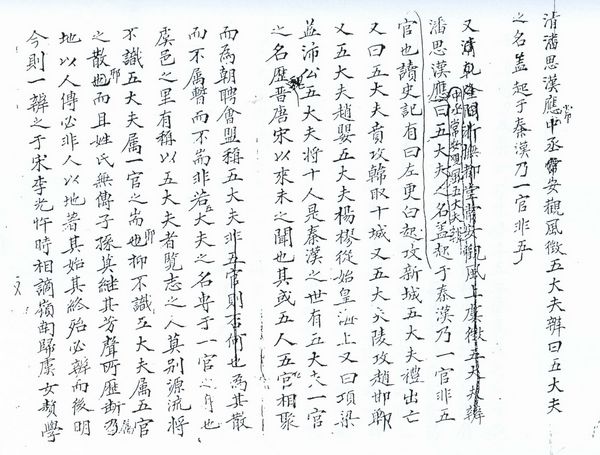 清潘思漢應中丞常安觀風徵五大夫辯曰五大夫
之名蓋起于秦漢乃一官非五
又清乾隆間浙撫常安觀風上虞徵五大夫辯
潘思漢應曰五大夫之名蓋起于秦漢乃一官非五
官也讀史記有曰左更白起攻新城五大夫禮出亡
又曰五大夫賁攻韓取十城又五大夫陵攻趙邯鄲
又五大夫趙嬰五大夫楊樛從始皇海上又曰項梁
益沛公五大夫將十人是秦漢之世有五大夫一官
之名歷晉唐宋以來未之聞也其或五人五官相聚
而為朝聘會盟稱五大夫非五官則否何也為其散
而不屬瞀而不耑非若五大夫之名專于一官之身也
虞邑之里有稱以五大夫者覽志之人莫別源流將
不識五大夫屬一官之耑也抑不識五大夫屬五官
之散也而且姓氏無傳子孫莫繼其芳聲所歷斷乃
地以人傳必非人以地著其始其終殆必辨而後明
今則一辯之于宋李光忤時相謫嶺南歸虞女類學